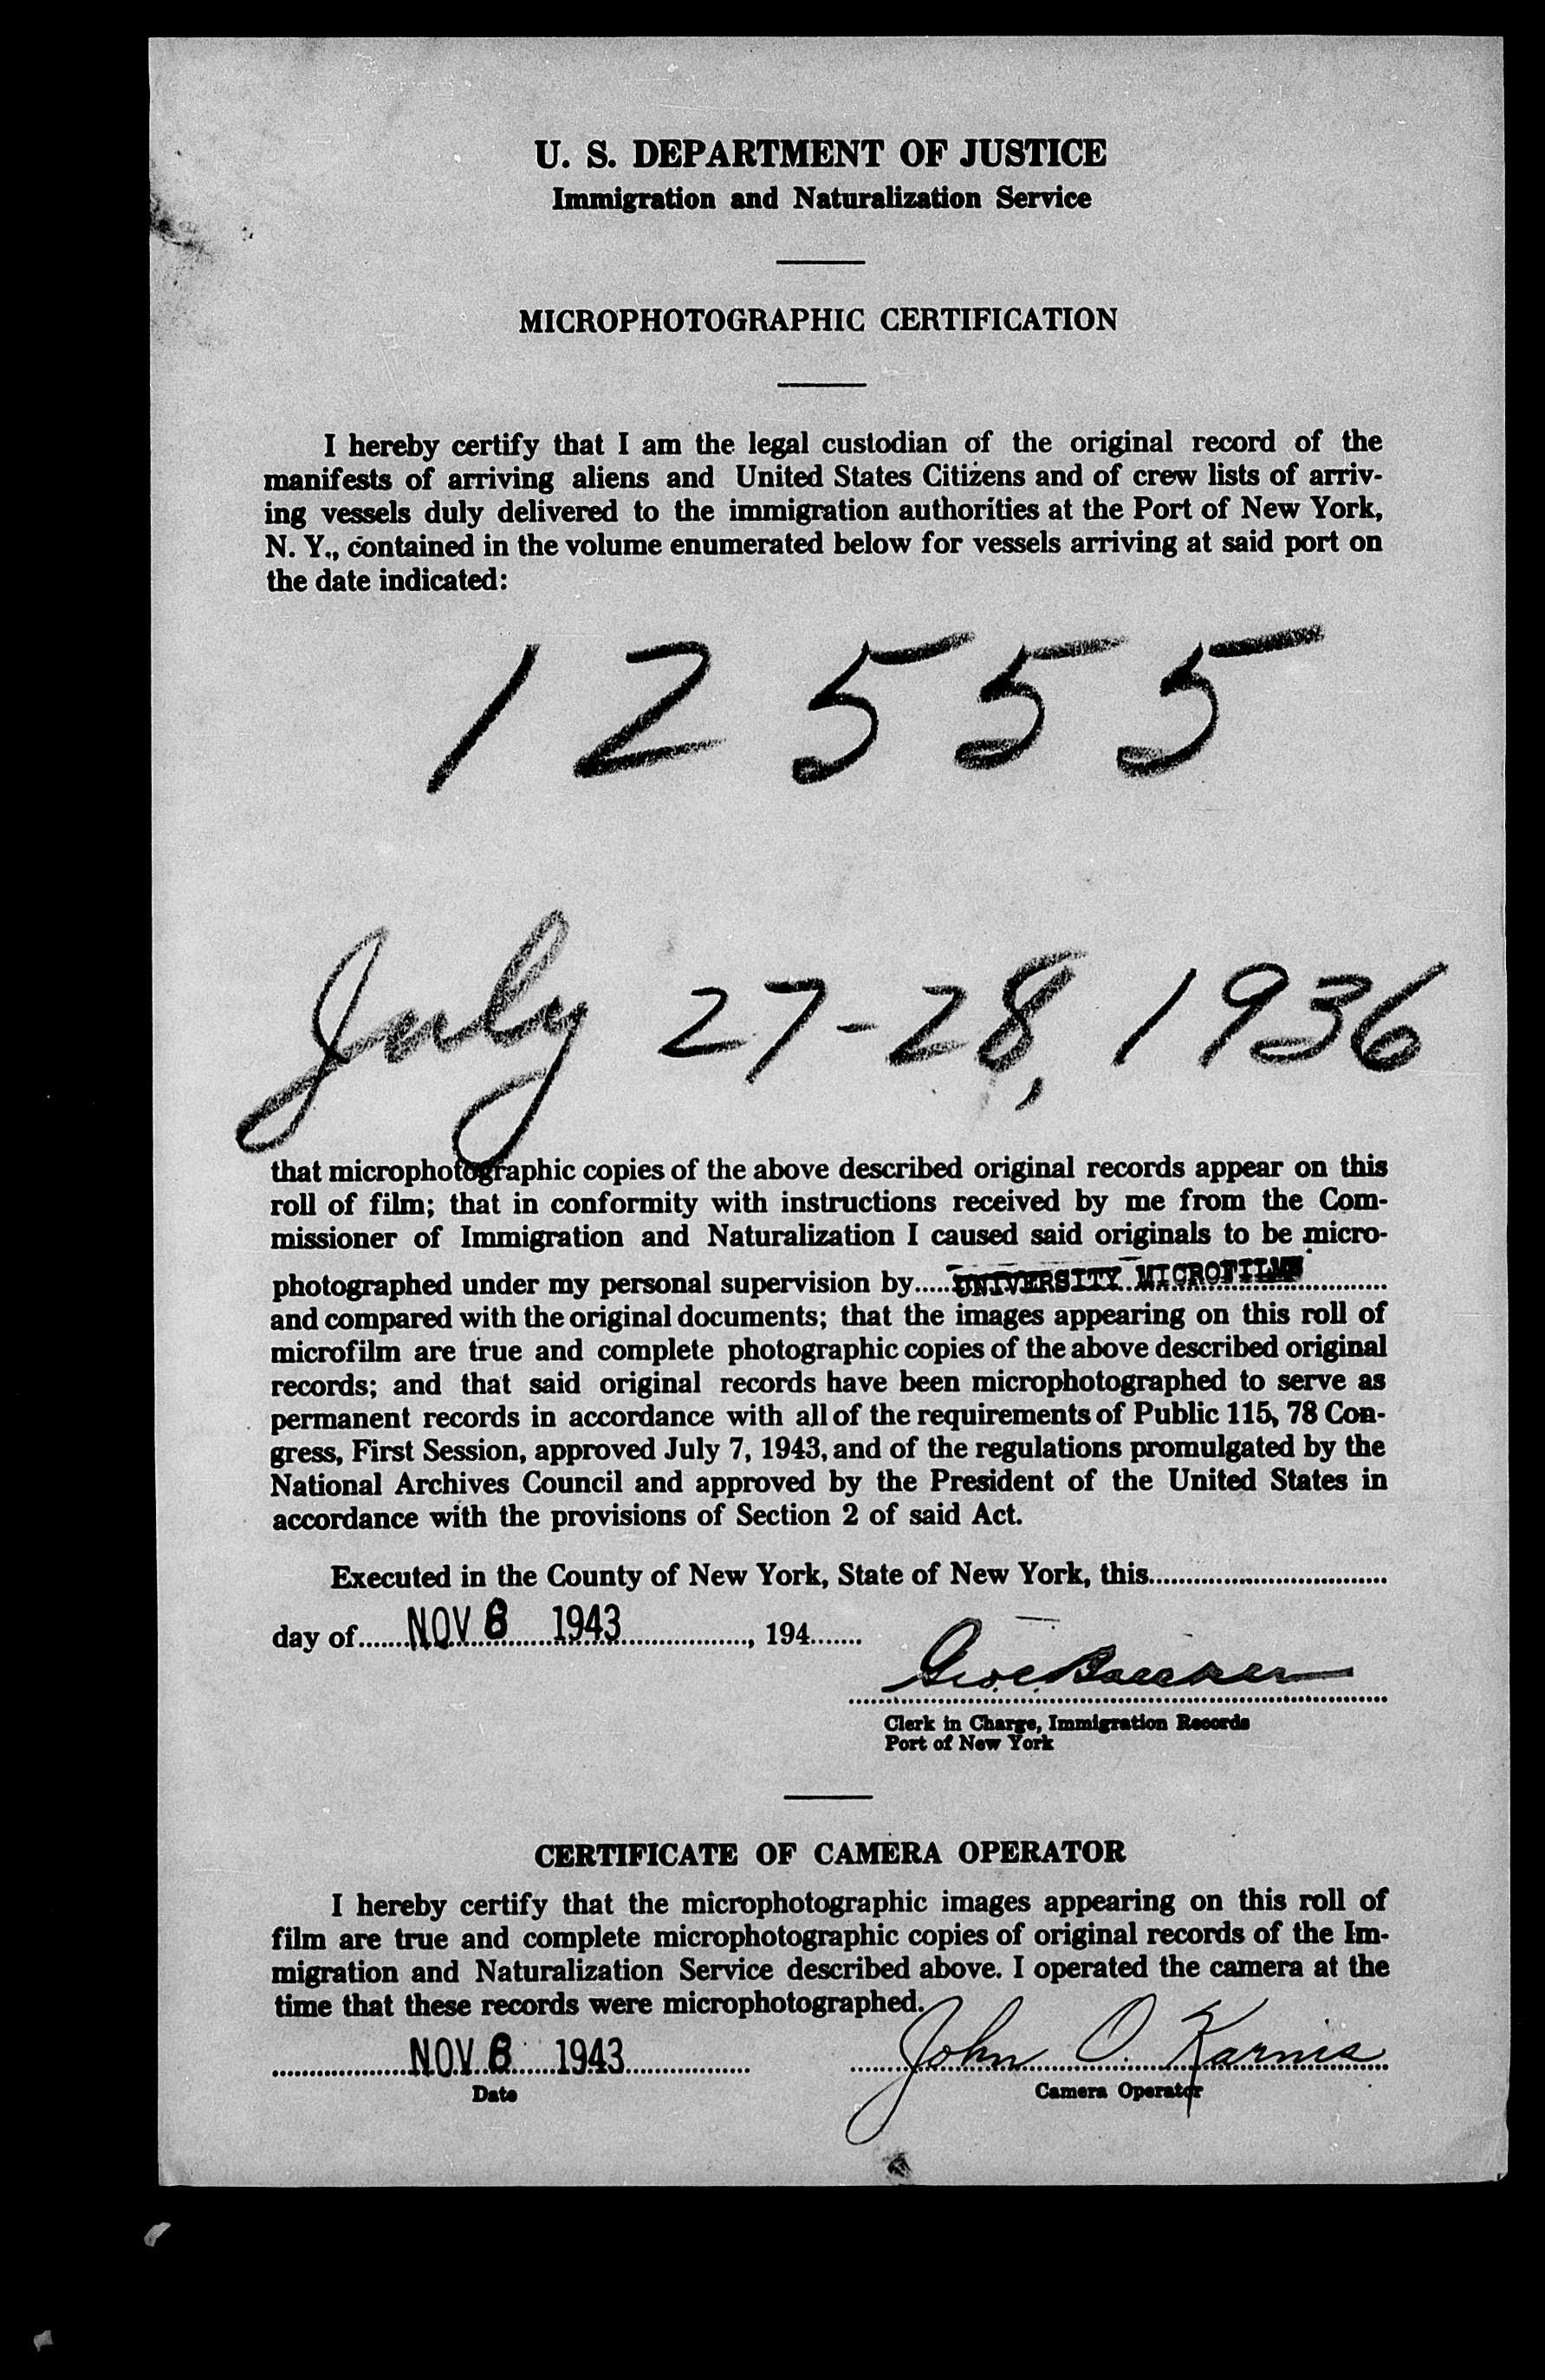 U. S. DEPARTMENT OF JUSTICE
Immigration and Naturalization Service
MICROPHOTOGRAPHIC CERTIFICATION
I hereby certify that I am the legal custodian of the original record of the
manifests of arriving aliens and United States Citizens and of crew lists of arriv-
ing vessels duly delivered to the immigration authorities at the Port of New York,
N. Y., contained in the volume enumerated below for vessels arriving at said port on
the date indicated:
12555
July 27-28, 1936
that microphotographic copies of the above described original records appear on this
roll of film; that in conformity with instructions received by me from the Com-
missioner of Immigration and Naturalization I caused said originals to be micro-
photographed under my personal supervision by.....UNIVERSITY MICROFILMS
and compared with the original documents; that the images appearing on this roll of
microfilm are true and complete photographic copies of the above described original
records; and that said original records have been microphotographed to serve as
permanent records in accordance with all of the requirements of Public 115, 78 Con-
gress, First Session, approved July 7, 1943, and of the regulations promulgated by the
National Archives Council and approved by the President of the United States in
accordance with the provisions of Section 2 of said Act.
Executed in the County of New York, State of New York, this
day of NOV 8 1943, 194
Clerk in Charge, Immigration Records
Port of New York
CERTIFICATE OF CAMERA OPERATOR
I hereby certify that the microphotographic images appearing on this roll of
film are true and complete microphotographic copies of original records of the Im-
migration and Naturalization Service described above. I operated the camera at the
time that these records were microphotographed.
NOV 8 1943 John O. Karnis
Date Camera Operator